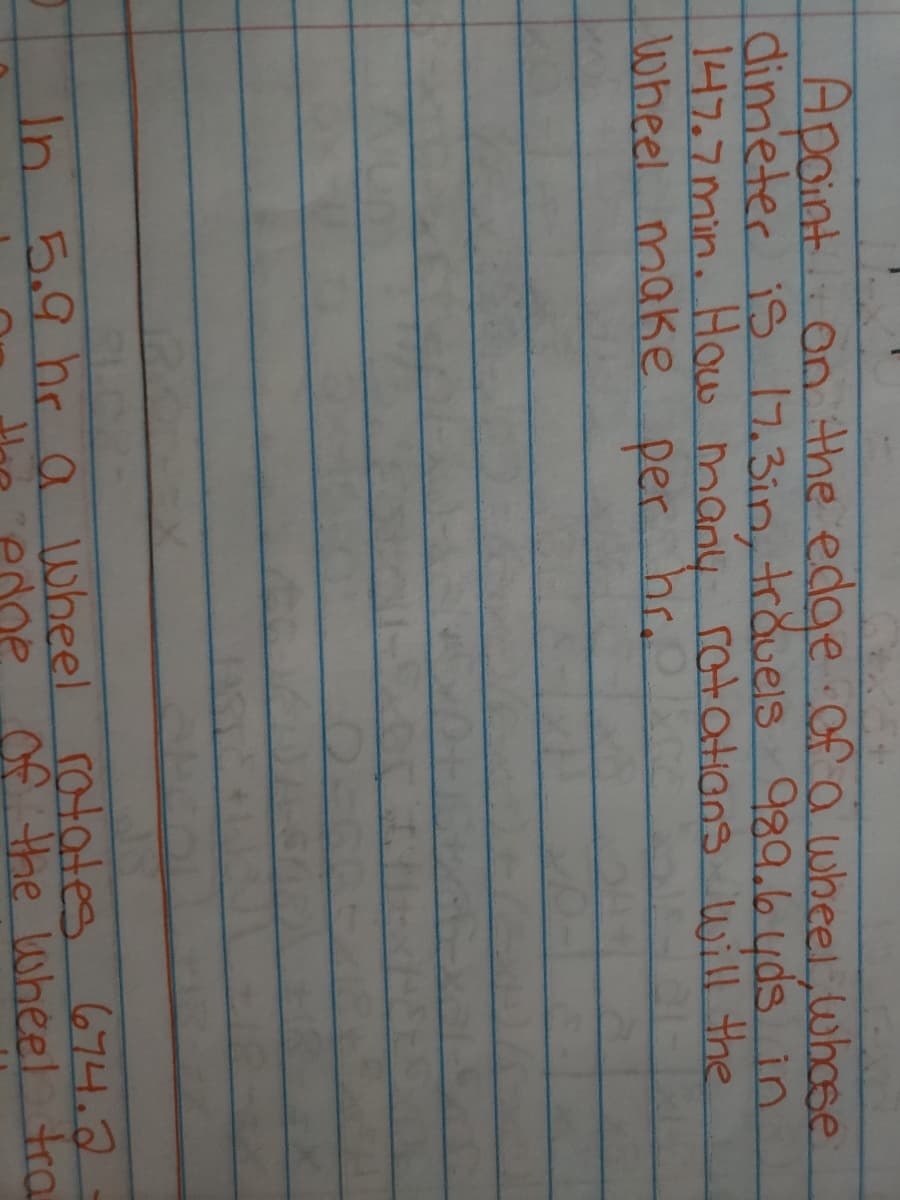 A point on the edge of a wheel, whose
dimeter is 17.3in, travels 989.6 yds in
147.7 min. How many rotations will the
wheel make per hr.
In 5.9 hr a wheel rotates 674.2
the edge of the wheel tra